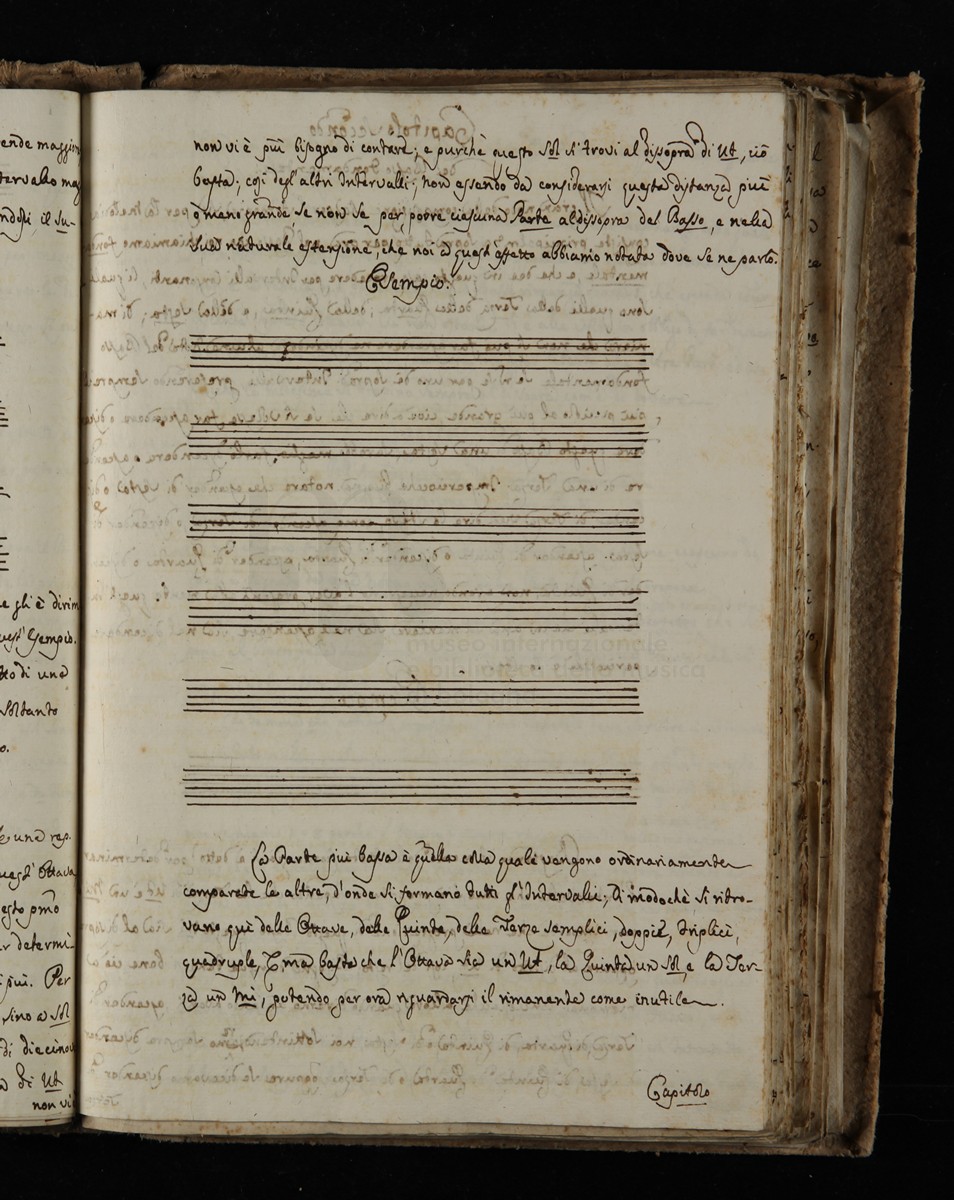 ende maggior
tervallo mag
ndosi il Su-
non vi è più bisogno di contare; e purchè questo Sol si trovi al dissopra di Ut, ciò
basta; così degl'altri Intervalli; non essendo da considerarsi questa distanza più
o meno grande se non se per porre ciascuna Parte al dissopra del Basso, e nella
sua naturale estensione, che noi a quest'effetto abbiamo notata dove se ne parlò.
Esempio.
e gli è dirim
uest'Esempio.
tto di una
Soltanto
o.
è una rap.
uest'Ottava
esto pmo
r determi-
più. Per
sino a Sol
di diecinov
a di Ut
non vi
La Parte più bassa è quella colla quale vengono ordinariamente
comparate le altre, d'onde si formano tutti gl'Intervalli; di modochè si ritro-
vano quì delle Ottave, delle Quinte, delle Terze semplici, doppie, triplici,
quadruple, ma basta che l'Ottava sia un Ut, la Quinta un Sol, e la Ter-
za un Mi, potendo per ora riguardarsi il rimanente come inutile.
Capitolo
museo internazionale
e biblioteca della musica